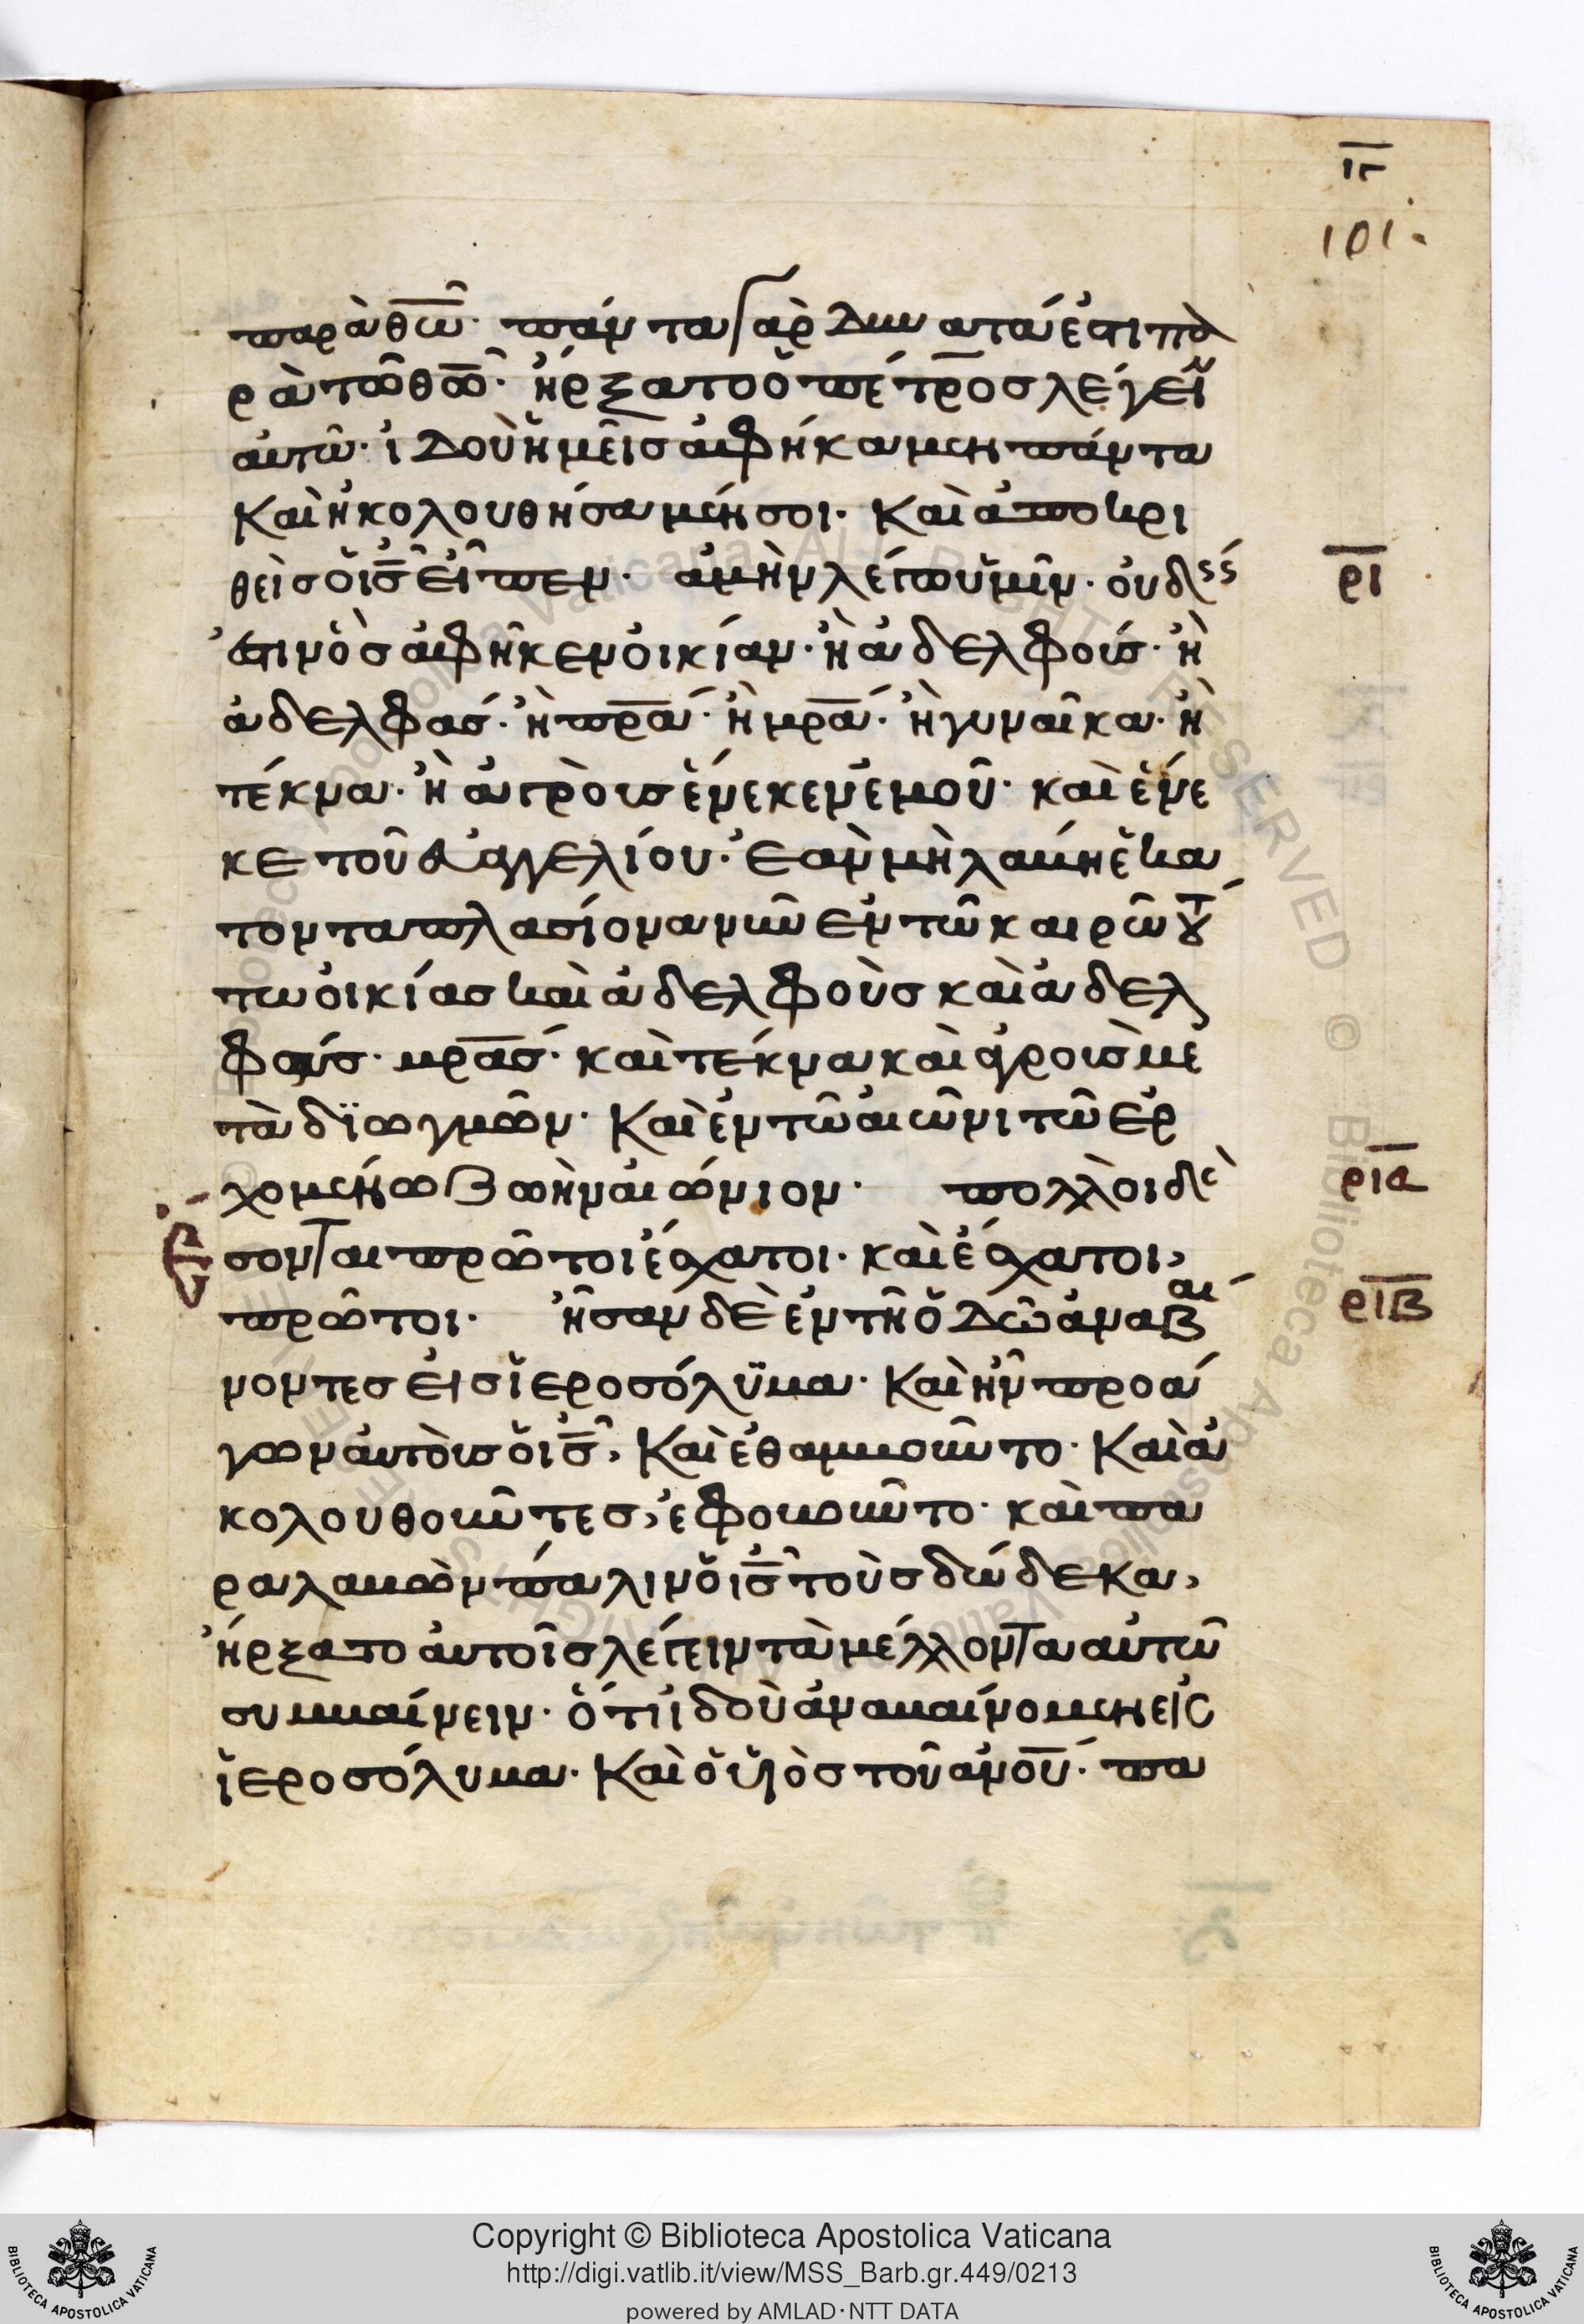 π
101.
παρὰ θω̅. πάντα γὰρ δυνατά ἐστι πα
ρὰ τῶ θω̅. ἤρξατο ὁ πέτρος λέγειν
αὐτῶ. ἰδοὺ ἡμεῖς ἀφήκαμεν πάντα
καὶ ἠκολουθήσαμέν σοι. καὶ ἀποκρι
θεὶς ὁ ις̅ εἶπεν. ἀμὴν λέγω ὑμῖν. οὐδείς
ρι̅
ἐστιν ὃς ἀφῆκεν οἰκίαν. ἢ ἀδελφούς. ἢ
ἀδελφάς. ἢ πρα̅. ἢ μρα̅. ἢ γυναῖκα. ἢ
τέκνα. ἢ ἀγροὺς ἕνεκεν ἐμοῦ. καὶ ἕνε
κε τοῦ εὐαγγελίου. ἐὰν μὴ λάβη ἑκα
τονταπλασίονα νῦν ἐν τῶ καιρῶ τού
τω οἰκίας καὶ ἀδελφοὺς καὶ ἀδελ
φάς. μρας̅. καὶ τέκνα καὶ ἀγροὺς με
τὰ διωγμῶν. καὶ ἐν τῶ αἰῶνι τῶ ἐρ
χομένω ζωὴν αἰώνιον. πολλοὶ δὲ
ρια̅
ἔσονται πρῶτοι ἔσχατοι. καὶ ἔσχατοι,
πρῶτοι. ἦσαν δὲ ἐν τῆ ὁδῶ ἀναβαί
ριβ̅
νοντες εἰς ἱεροσόλυμα. καὶ ἦν προά
γων αὐτοὺς ὁ ις̅, καὶ ἐθαμβοῦντο. καὶ ἀ
κολουθοῦντες, ἐφοβοῦντο. καὶ πα
ραλαβὼν πάλιν ὁ ις̅ τοὺς δώδεκα,
ἤρξατο αὐτοῖς λέγειν τὰ μέλλοντα αὐτῶ
συμβαίνειν. ὅτι ἰδοὺ ἀναβαίνομεν εἰς
ἱεροσόλυμα. καὶ ὁ υἱὸς τοῦ ανου̅. πα
Copyright © Biblioteca Apostolica Vaticana
http://digi.vatlib.it/view/MSS_Barb.gr.449/0213
powered by AMLAD·NTT DATA
BIBLIOTECA APOSTOLICA VATICANA
BIBLIOTECA APOSTOLICA VATICANA